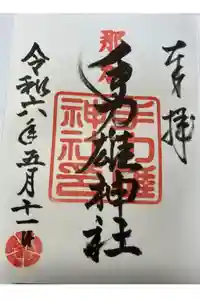 奉拝
那
手力雄神社
手力雄
神社印
令和六年五月十一日